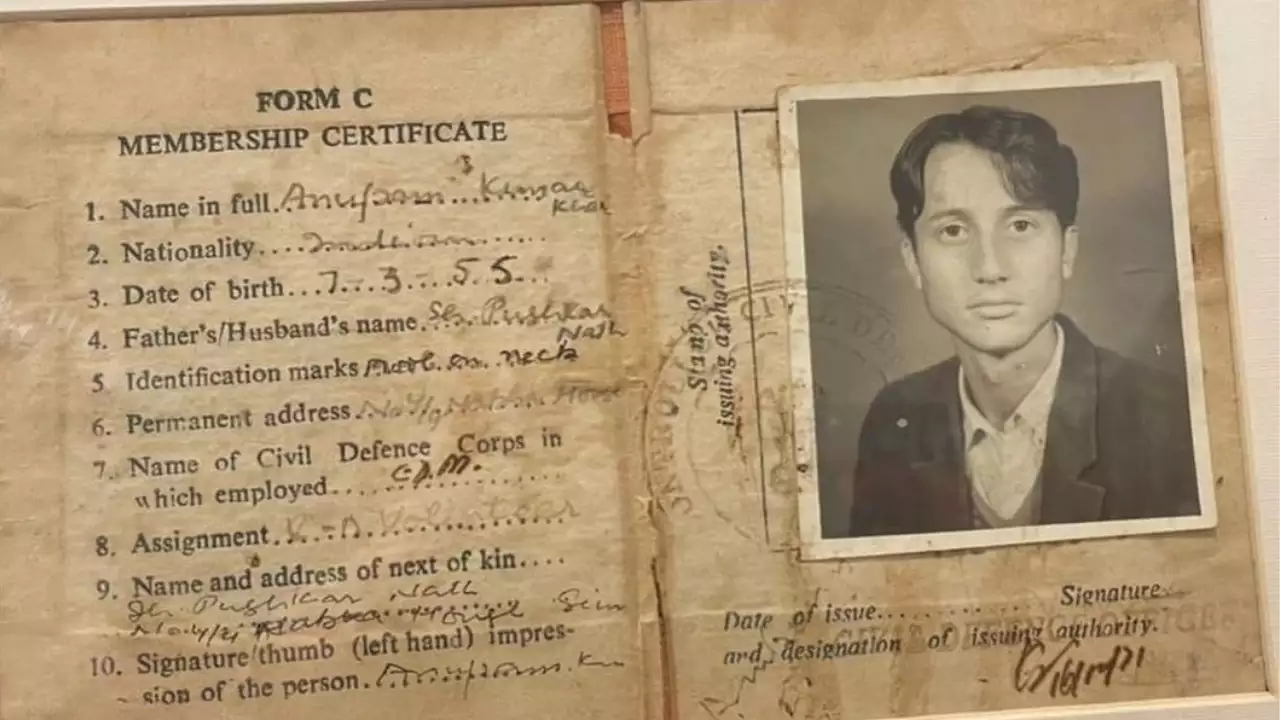 FORM C
MEMBERSHIP CERTIFICATE
1. Name in full. Anupam Kumar
Kher
2. Nationality....Indian......
3. Date of birth...7...3...55...
4. Father's/Husband's name. Sh. Pushkar
Nath
5 Identification marks mark on neck
6. Permanent address. No 4/9 Nabha House
7. Name of Civil Defence Corps in
which employed....
8. Assignment. Volunteer
9. Name and address of next of kin....
Sh. Pushkar Nath
Nabha House Sim
10. Signature/thumb (left hand) impres-
sion of the person. Anupam.
Stamp of
issuing authority.
CIVIL DE
Date of issue............ Signature
and designation of issuing authority.
CIVIL DEFENCE